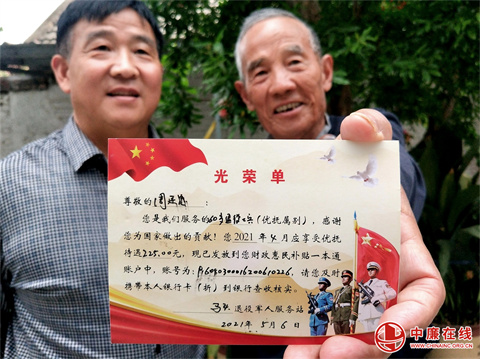 光荣单
尊敬的周
您是我们服务的60岁退役士兵(优抚属别),感谢
您为国家做出的贡献!您2021年4月应享受优抚
待遇225.00元,现已发放到您财政惠民补贴一本通
账户中,账号为: 请您及时
携带本人银行卡(折)到银行查收核实。
退役军人服务站
2021年5月6日
中廉在线
WWW.CHINAINC.ORG.CN